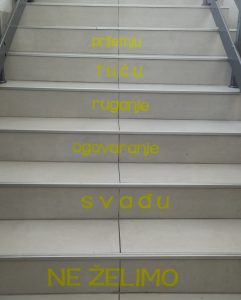 prijetnju
tuču
ruganje
ogovaranje
svađu
NE ŽELIMO